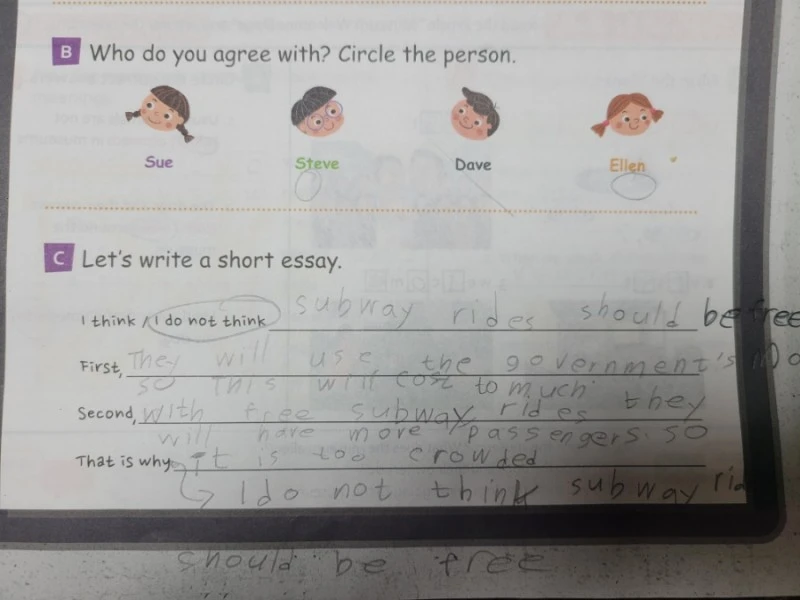 B Who do you agree with? Circle the person.
Sue Steve Dave Ellen
C Let's write a short essay.
I think / I do not think subway rides should be free
First, They will use the government's
so This will cost to much
Second, with free subway rides they
will have more passengers. so
That is why it is too crowded
I do not think subway
should be free